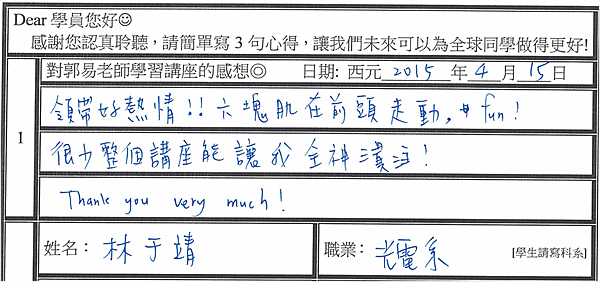 Dear 學員您好☺
感謝您認真聆聽，請簡單寫 3 句心得，讓我們未來可以為全球同學做得更好!
對郭易老師學習講座的感想◎ 日期: 西元 2015 年 4 月 15 日
1
領帶好熱情!! 六塊肌在前頭走動, fun!
很少整個講座能讓我全神灌注!
Thank you very much!
姓名: 林于靖 職業: 光電系 [學生請寫科系]